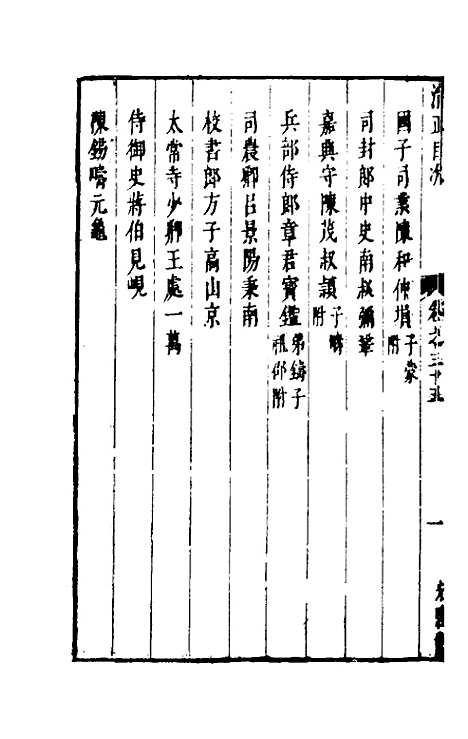 治政目次
卷之三十五
一
國子司業陳和仲塤子蒙附
司封郎中史南叔彌鞏
嘉興守陳茂叔韻子疇附
兵部侍郎章君寶鑑弟鑄子祖邵附
司農卿呂景陽秉南
校書郎方子高山京
太常寺少卿王處一萬
侍御史蔣伯見峴
陳錫疇元龜